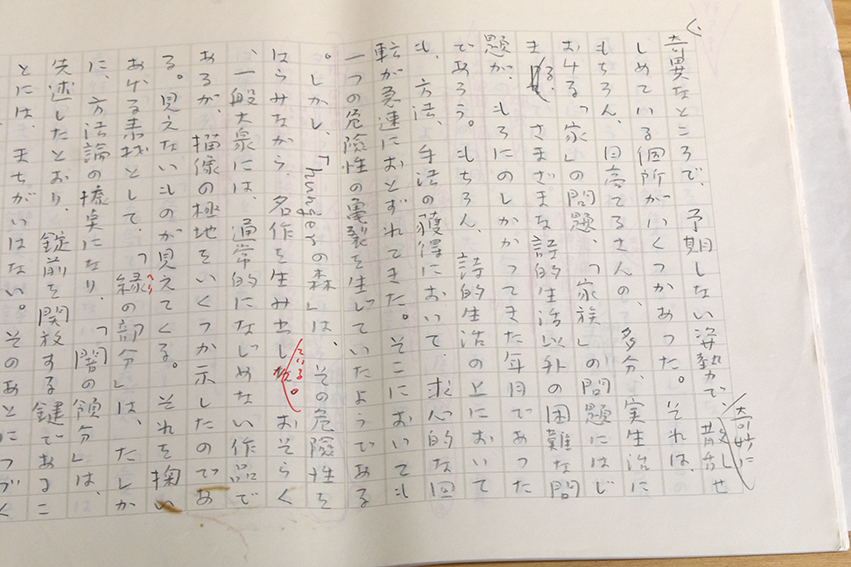 く
奇異なところで、予期しない姿勢で、散在せ
奇妙に
しめている個所がいくつかあった。それは、
もちろん、日高てるさんの、多分、実生活に
おける「家」の問題、「家族」の問題にはじ
まる、さまざまな詩的生活以外の困難な問
題が、もろにのしかかってきた年月であった
であろう。もちろん、詩的生活の上において
も、方法、手法の獲得において、求心的な回
転が急速におとずれてきた。そこにおいても
一つの危険性の亀裂を生じていたようである
。しかし、「hungerの森」は、その危険性を
はらみながら、名作を生み出している。おそらく
、一般大衆には、通常的になじめない作品で
あるが、描像の極地をいくつか示したのであ
る。見えないものが見えてくる。それを掬い
あげる素材として、「縁の部分」は、たしか
へり
に、方法論の標臭になり、「闇の領分」は、
先述したとおり、錠前を開放する鍵であるこ
とには、まちがいはない。そのあとにつづく